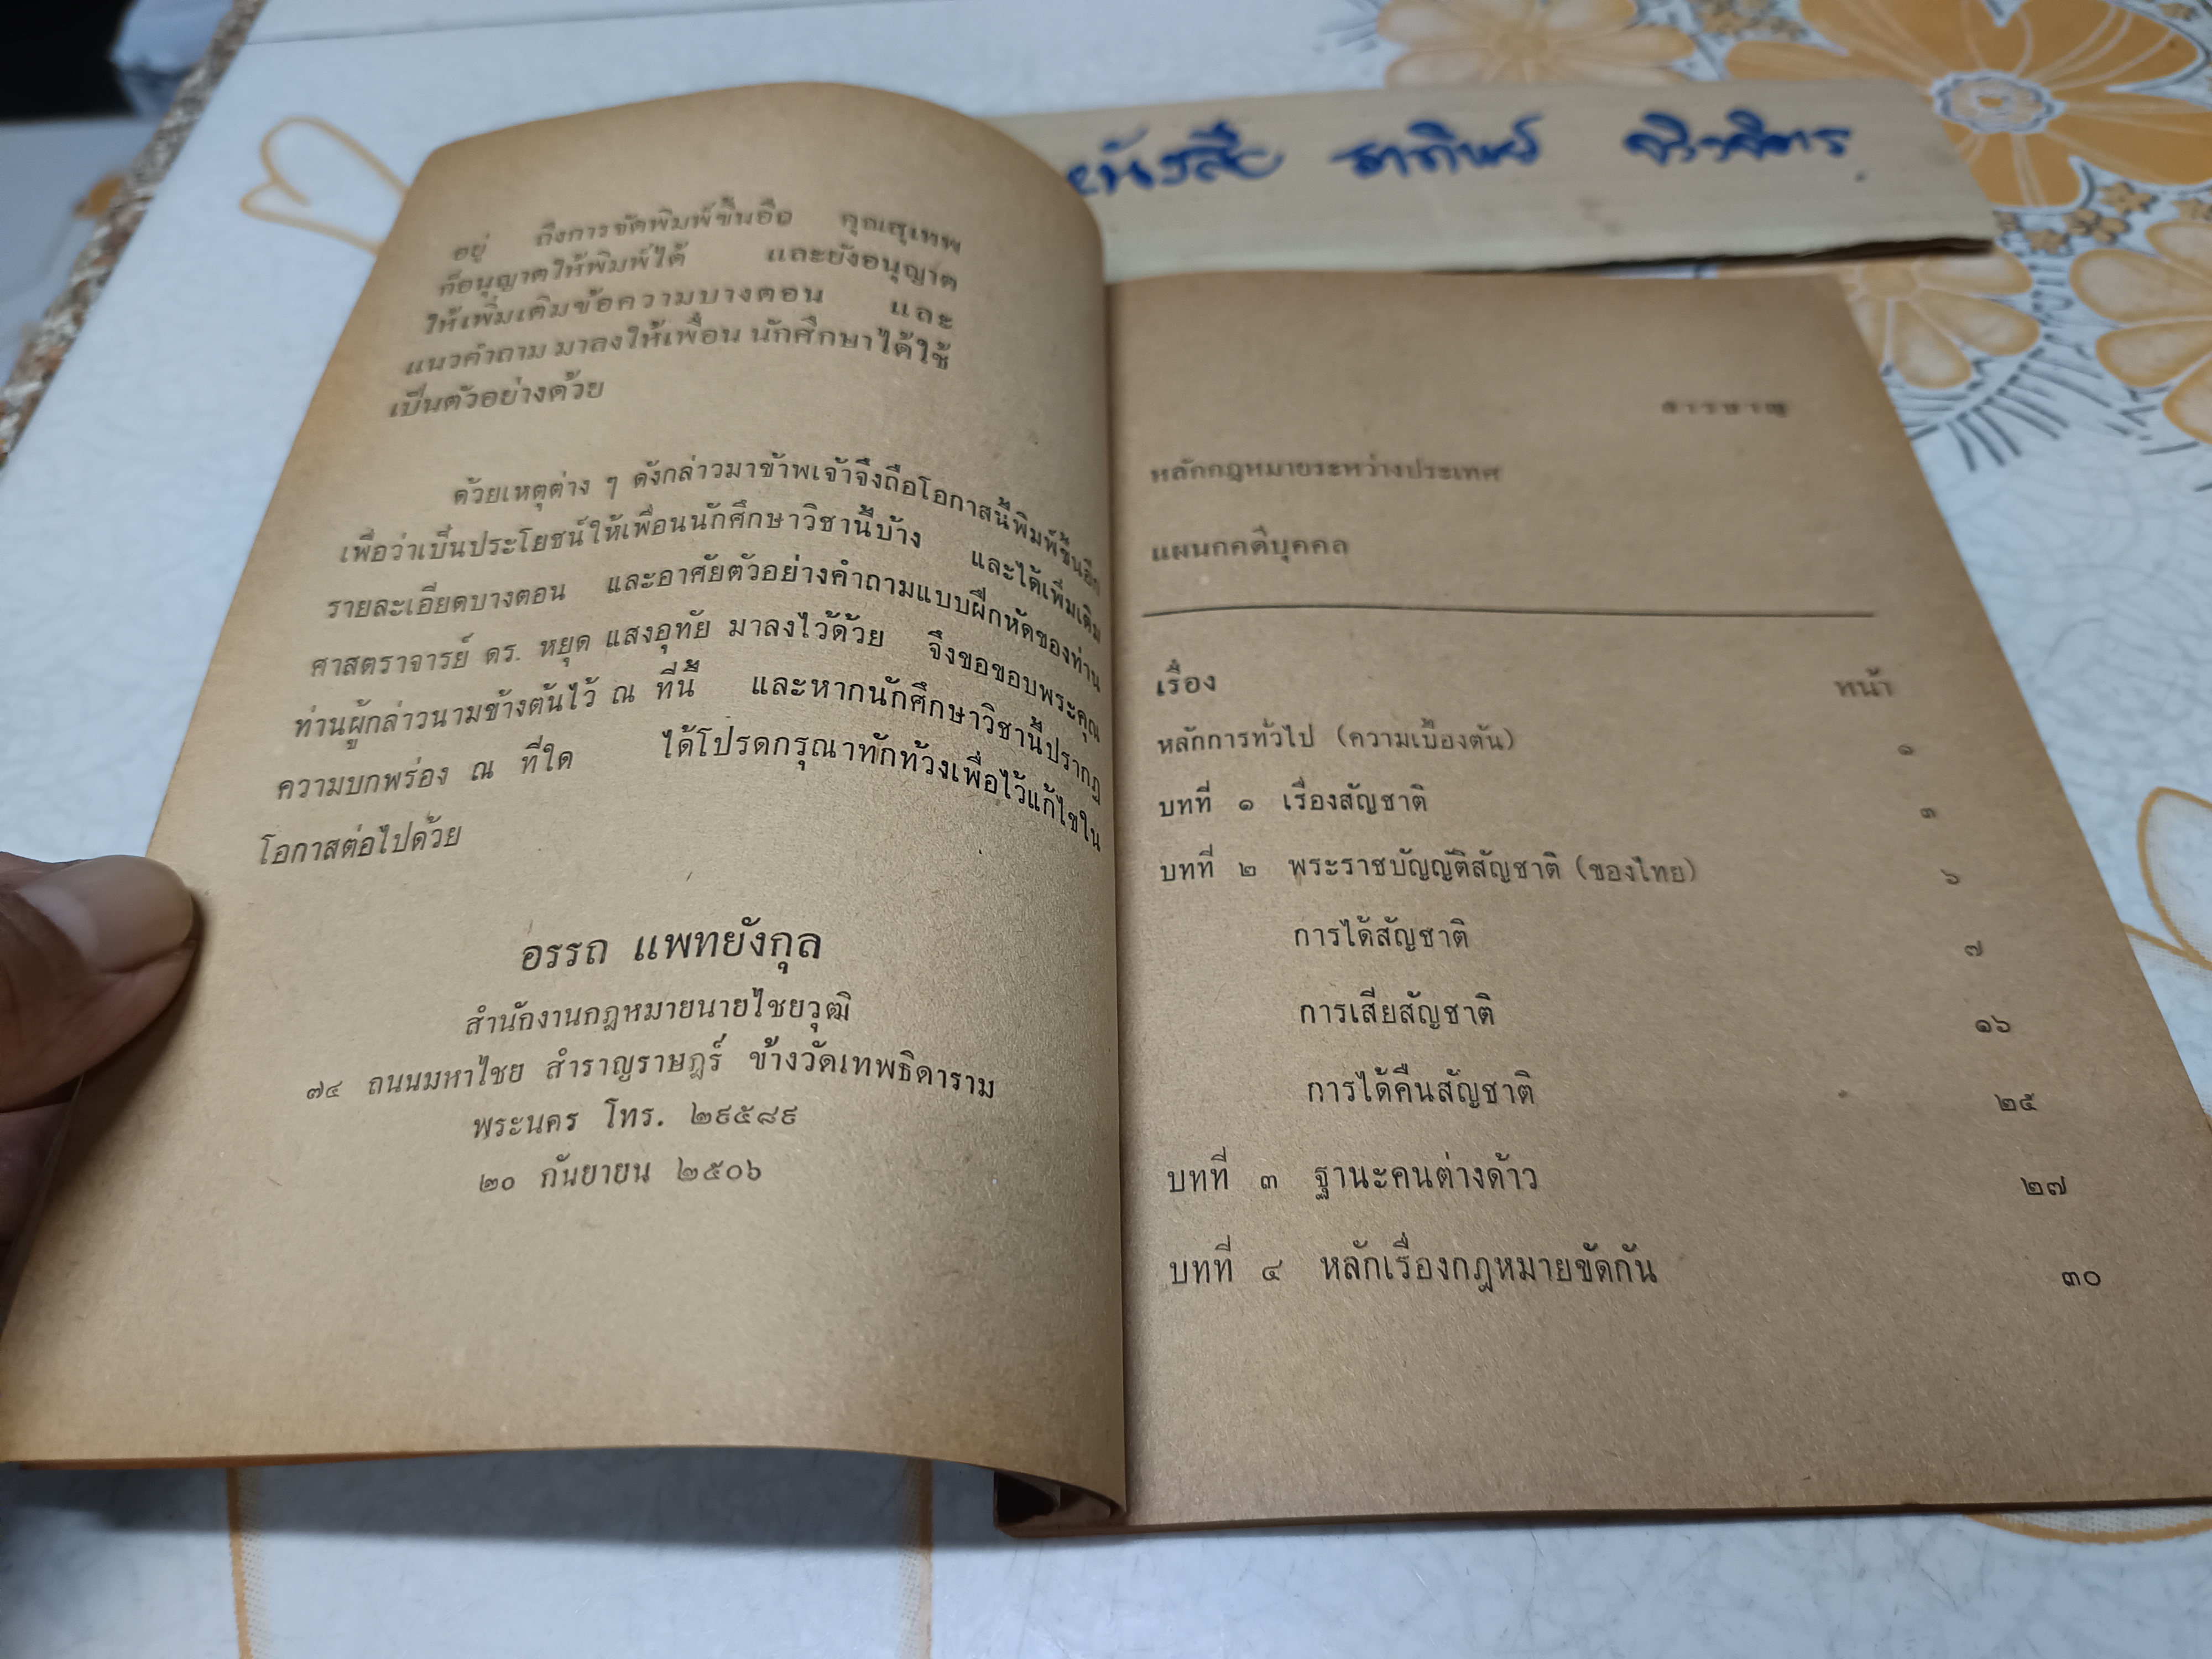 อยู่ ถึงการจัดพิมพ์ขึ้นอีก คุณสุเทพ
ก็อนุญาตให้พิมพ์ได้ และยังอนุญาต
ให้เพิ่มเติมข้อความบางตอน และ
แนวคำถาม มาลงให้เพื่อน นักศึกษาได้ใช้
เป็นตัวอย่างด้วย
ด้วยเหตุต่าง ๆ ดังกล่าวมาข้าพเจ้าจึงถือโอกาสนี้พิมพ์ขึ้นอีก
เพื่อว่าเป็นประโยชน์ให้เพื่อนนักศึกษาวิชานี้บ้าง และได้เพิ่มเติม
รายละเอียดบางตอน และอาศัยตัวอย่างคำถามแบบฝึกหัดของท่าน
ศาสตราจารย์ ดร. หยุด แสงอุทัย มาลงไว้ด้วย จึงขอขอบพระคุณ
ท่านผู้กล่าวนามข้างต้นไว้ ณ ที่นี้ และหากนักศึกษาวิชานี้ปรากฏ
ความบกพร่อง ณ ที่ใด ได้โปรดกรุณาทักท้วงเพื่อไว้แก้ไขใน
โอกาสต่อไปด้วย
อรรถ แพทยังกุล
สำนักงานกฎหมายนายไชยวุฒิ
๗๔ ถนนมหาไชย สำราญราษฎร์ ข้างวัดเทพธิดาราม
พระนคร โทร. ๒๙๕๘๙
๒๐ กันยายน ๒๕๐๖
หนังสือ
สารบาญ
หลักกฎหมายระหว่างประเทศ
แผนกคดีบุคคล
เรื่อง หน้า
หลักการทั่วไป (ความเบื้องต้น) ๑
บทที่ ๑ เรื่องสัญชาติ ๓
บทที่ ๒ พระราชบัญญัติสัญชาติ (ของไทย) ๖
การได้สัญชาติ ๗
การเสียสัญชาติ ๑๖
การได้คืนสัญชาติ ๒๕
บทที่ ๓ ฐานะคนต่างด้าว ๒๗
บทที่ ๔ หลักเรื่องกฎหมายขัดกัน ๓๐